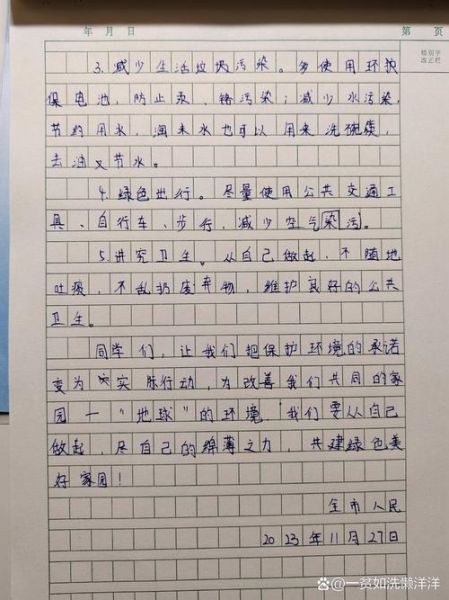 年 月 日 第 页
错别字
改正栏
3.减少生活垃圾污染。多使用环
保电池,防止汞、铬污染;减少水污染,
节约用水,淘米水也可以用来洗碗筷,
去油又节水。
4.绿色出行。尽量使用公共交通工
具、自行车、步行,减少空气染污。
5.讲究卫生。从自己做起,不随地
吐痰,不乱扔废弃物,维护良好的公共
卫生。
同学们,让我们把保护环境的承诺
变为实际行动,为改善我们共同的家
园一“地球”的环境,我们要从自己
做起,尽自己的绵薄之力,共建绿色美
好家园!
全市人民
2023年11月27日
@一贫如洗懒洋洋